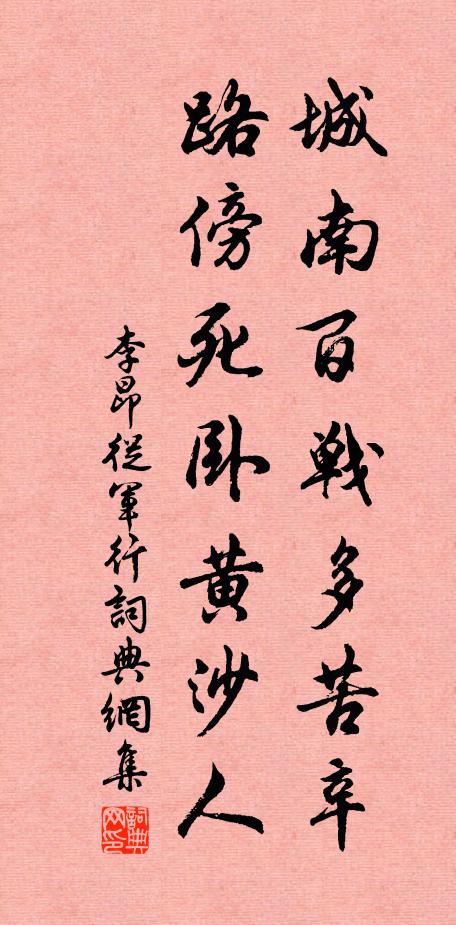 城南百戰多苦辛
路傍死卧黄沙人
李昂從軍行詞典網集
詞典网印